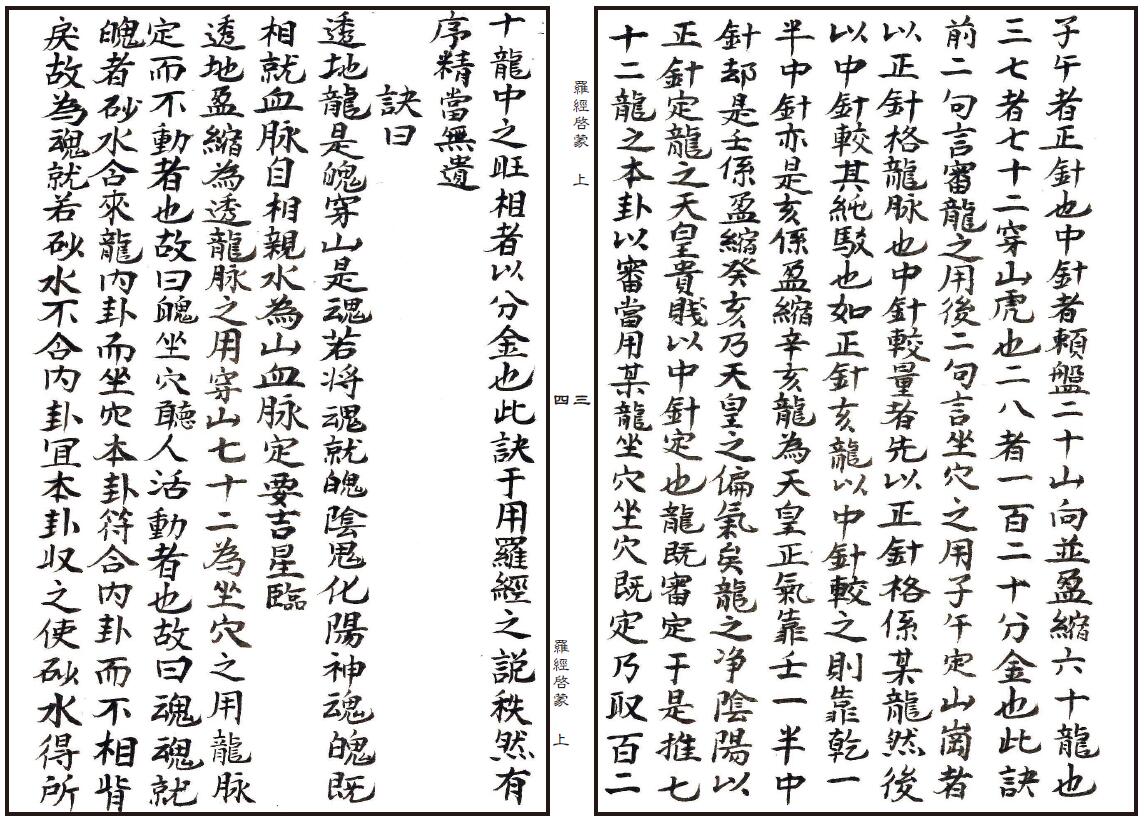 子午者正針也中針者賴盤二十山向並盈縮六十龍也
三七者七十二穿山虎也二八者一百二十分金也此訣
前二句言審龍之用後二句言坐穴之用子午定山崗者
以正針格龍脉也中針較量者先以正針格係某龍然後
以中針較其純駁也如正針亥龍以中針較之則靠乾一
半中針亦是亥係盈縮辛亥龍為天皇正氣靠壬一半中
針却是壬係盈縮癸亥乃天皇之偏氣矣龍之净陰陽以
正針定龍之天皇貴賤以中針定也龍既審定于是推七
十二龍之本卦以審當用某龍坐穴坐穴既定乃取百二
羅經啓蒙 上
三
四
羅經啓蒙 上
十龍中之旺相者以分金也此訣于用羅經之說秩然有
序精當無遺
訣曰
透地龍是魄穿山是魂若将魂就魄陰鬼化陽神魂魄既
相就血脉自相親水為山血脉定要吉星臨
透地盈縮為透龍脉之用穿山七十二為坐穴之用龍脉
定而不動者也故曰魄坐穴聽人活動者也故曰魂魂就
魄者砂水合來龍内卦而坐穴本卦符合内卦而不相背
戾故為魂就若砂水不合内卦宜本卦収之使砂水得所